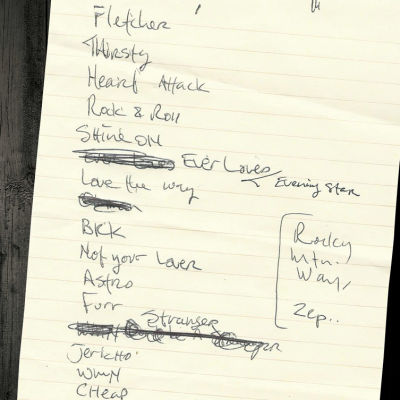 Fletcher
Thirsty
Heart Attack
Rock & Roll
Shine on
Ever Loves
Evening Star
Love the way
BKK
Not your Lover
Astro
Furr
Stranger
Jericho
WMN
Cheap
Rocky
Mtn.
Way,
Zep..